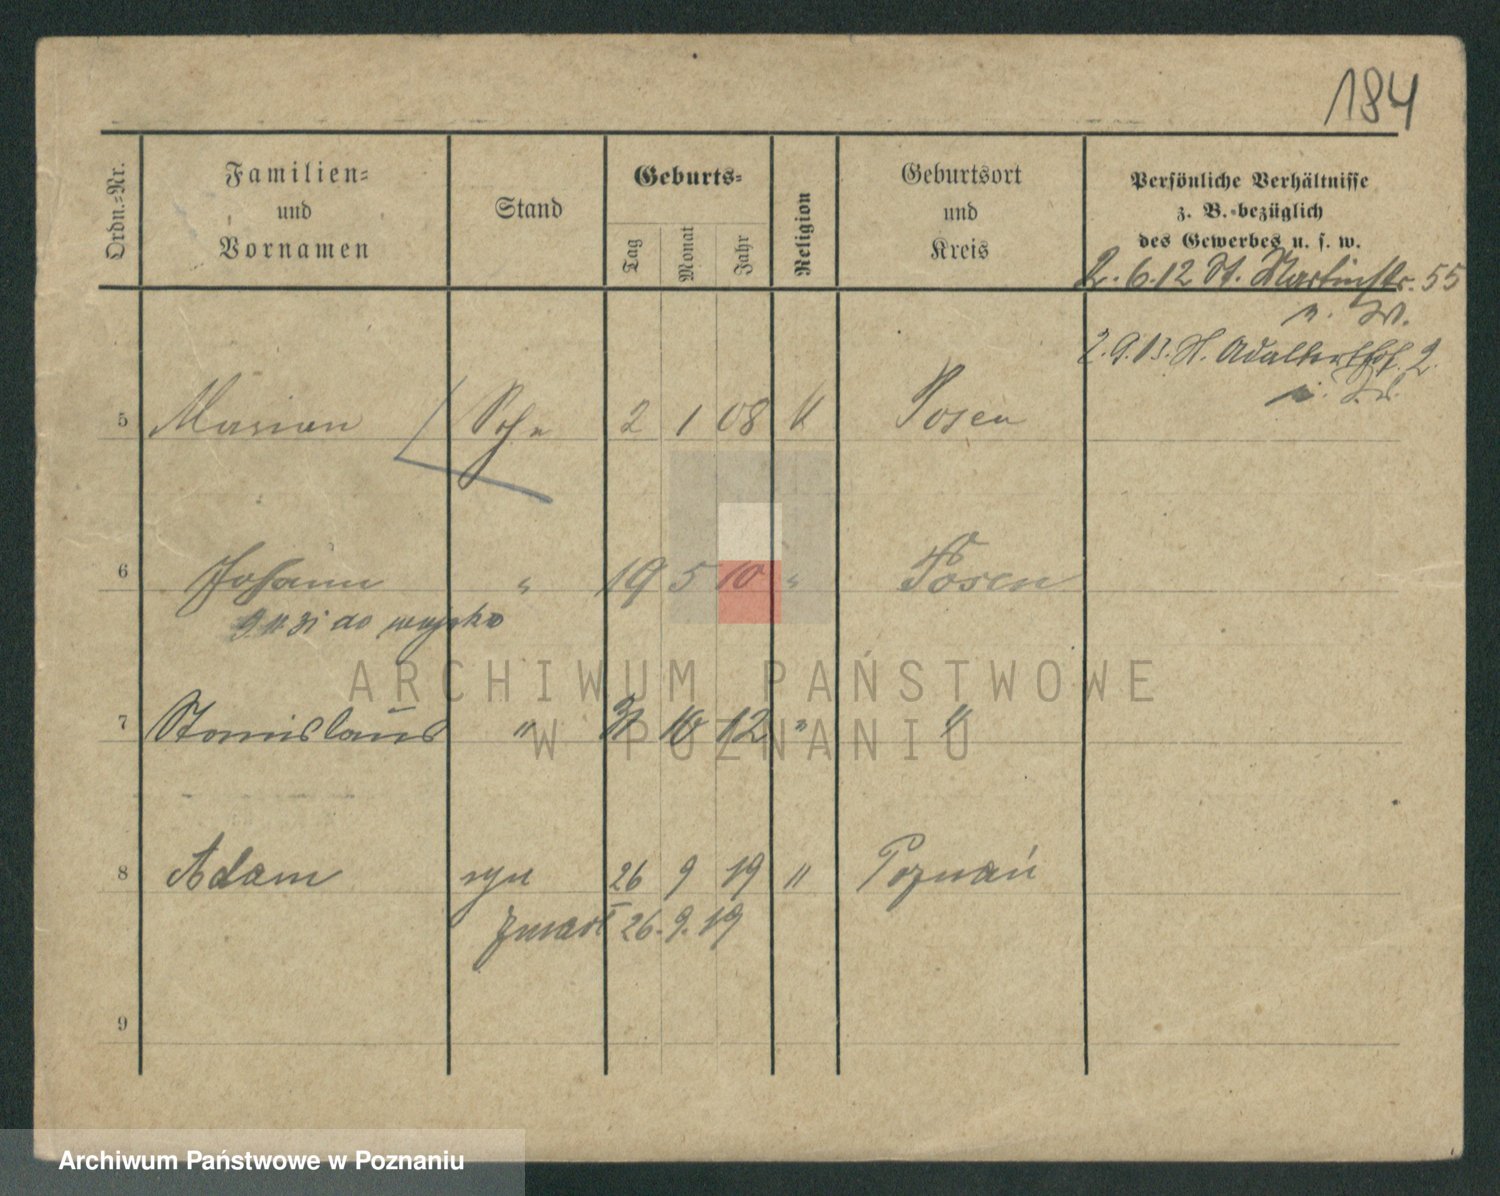 184
Ordn.-Nr.
Familien-
und
Vornamen
Stand
Geburts-
Tag
Monat
Jahr
Religion
Geburtsort
und
Kreis
Persönliche Verhältnisse
z. B. bezüglich
des Gewerbes u. s. w.
2.6.12 St. Martinstr. 55
W.
2.9.13. St. Adalbertstr. 2
5 Marian Sohn 2 1 08 K Posen
6 Johann " 19 5 10 " Posen
31 do wojska
7 Stanislaus " 31 10 12 " "
8 Adam syn 26 9 19 " Poznań
zmarł 26.9.19
9
ARCHIWUM PAŃSTWOWE
W POZNANIU
Archiwum Państwowe w Poznaniu